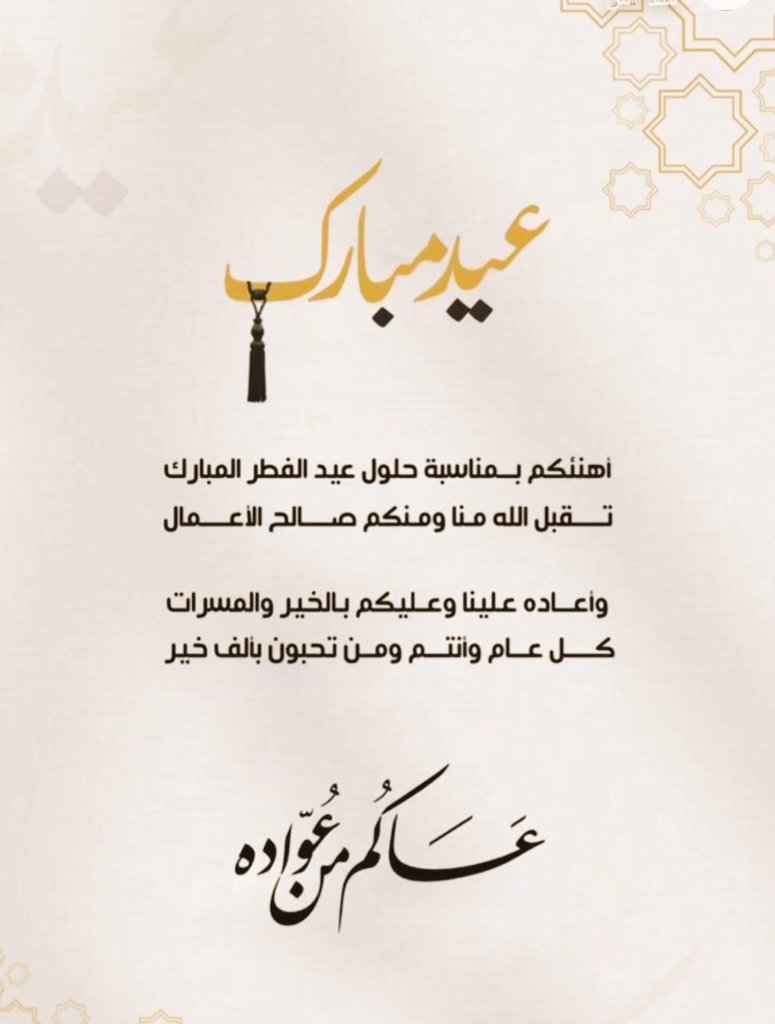 عيد مبارك
أهنئكم بمناسبة حلول عيد الفطر المبارك
تقبل الله منا ومنكم صالح الأعمال
وأعاده علينا وعليكم بالخير والمسرات
كل عام وأنتم ومن تحبون بألف خير
عَسَاكُم من عُوّاده